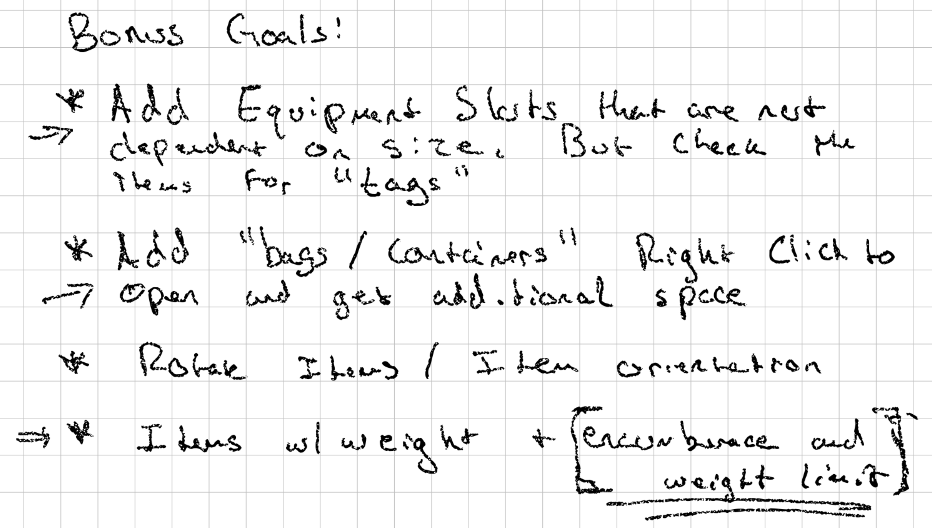 Bonus Goals!
* Add Equipment Slots that are not
→ dependent on size. But check the
items for "tags"
* Add "bags / Containers" Right Click to
→ Open and get additional space
* Rotate Items / Item orientation
⇒ * Items w/ weight + [encumburace and
weight limit]